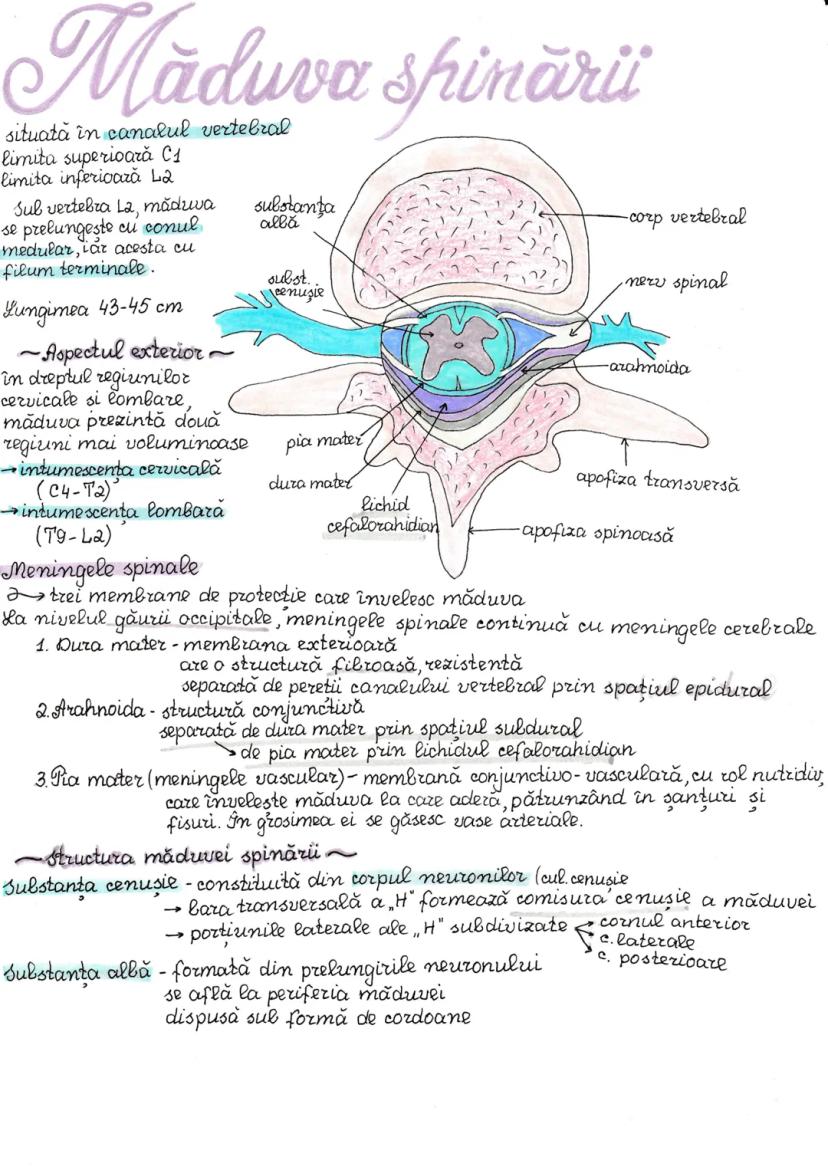 Măduva spinării
situată în canalul vertebral
limita superioară C1
limita inferioară L2
Sub vertebra L2, măduva
se prelungește cu conul
medular, iar acesta cu
filum terminale.
Lungimea 43-45 cm
~Aspectul exterior~
în dreptul regiunilor
cervicale si lombare,
măduva prezintă două
regiuni mai voluminoase
→intumescența cervicală
(C4-T2)
→intumescența lombară
(T9-L2)
substanța
albă
subst.
cenușie
corp vertebral
nerv spinal
arahnoida
pia mater
dura mater
lichid
cefalorahidian
apofiza transversă
apofiza spinoasă
Meningele spinale
→ trei membrane de protecție care învelesc măduva
La nivelul găurii occipitale, meningele spinale continuă cu meningele cerebrale
1. Dura mater - membrana exterioară
are o structură fibroasă, rezistentă
separată de pereții canalului vertebral prin spațiul epidural
2. Arahnoida - structură conjunctivă
separată de dura mater prin spațiul subdural
→ de pia mater prin lichidul cefalorahidian
3. Pia mater (meningele vascular) - membrană conjunctivo-vasculară, cu rol nutridiv,
care învelește măduva la care aderă, pătrunzând în șanțuri și
fisuri. În grosimea ei se găsesc vase arteriale.
~Structura măduvei spinării~
Substanța cenușie - constituită din corpul neuronilor (cul. cenușie
→ bara transversală a „H" formează comisura cenușie a măduvei
→ porțiunile laterale ale „H" subdivizate
cornul anterior
c. laterale
c. posterioare
Substanța albă - formată din prelungirile neuronului
se află la periferia măduvei
dispusă sub formă de cordoane